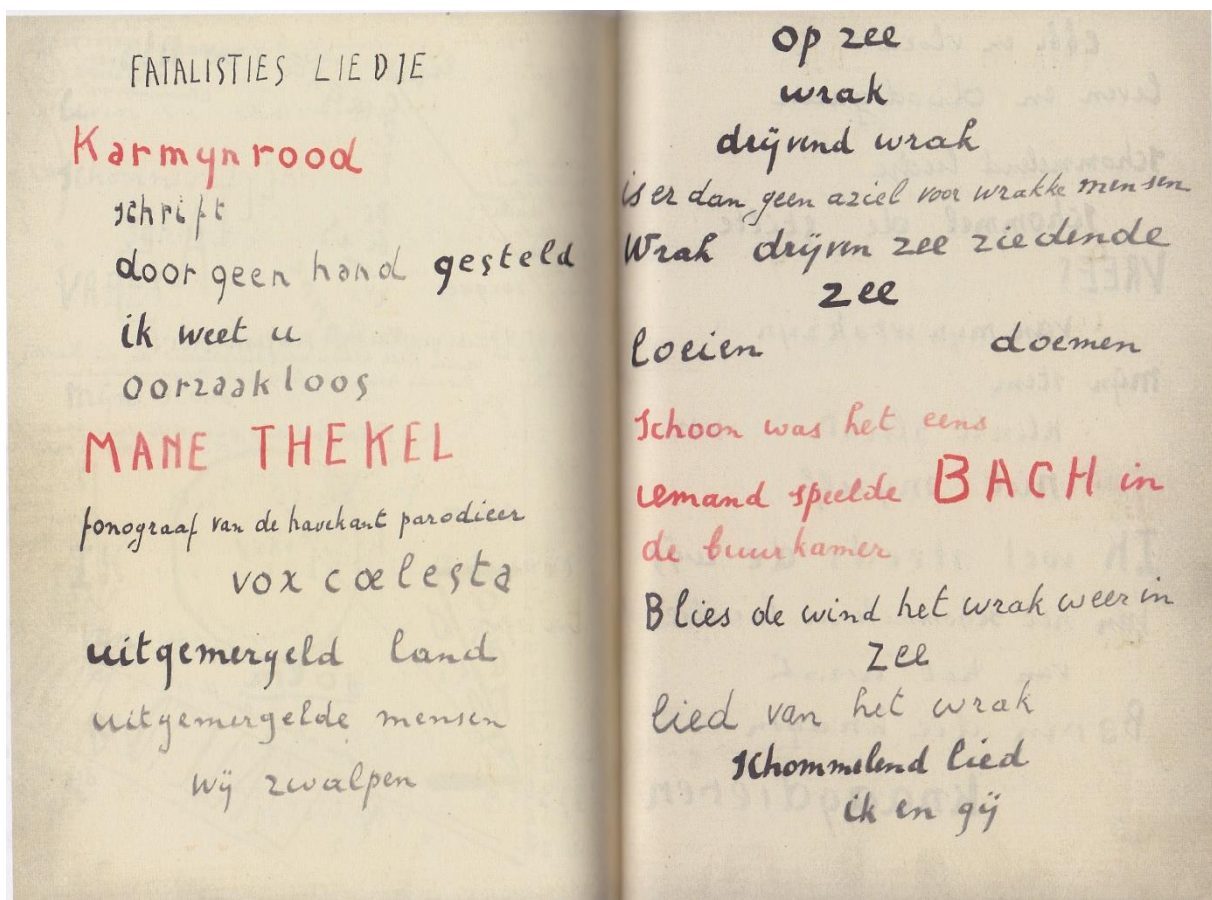 FATALISTIES LIEDJE
Karmynrood
schrift
door geen hand gesteld
ik weet u
oorzaakloos
MANE THEKEL
fonograaf van de havekant parodieer
vox cœlesta
uitgemergeld land
uitgemergelde mensen
wij zwalpen
op zee
wrak
drijvend wrak
is er dan geen aziel voor wrakke mensen
Wrak drijven zee ziedende
zee
loeien doemen
Schoon was het eens
iemand speelde BACH in
de buurkamer
Blies de wind het wrak weer in
Zee
lied van het wrak
schommelend lied
ik en gij